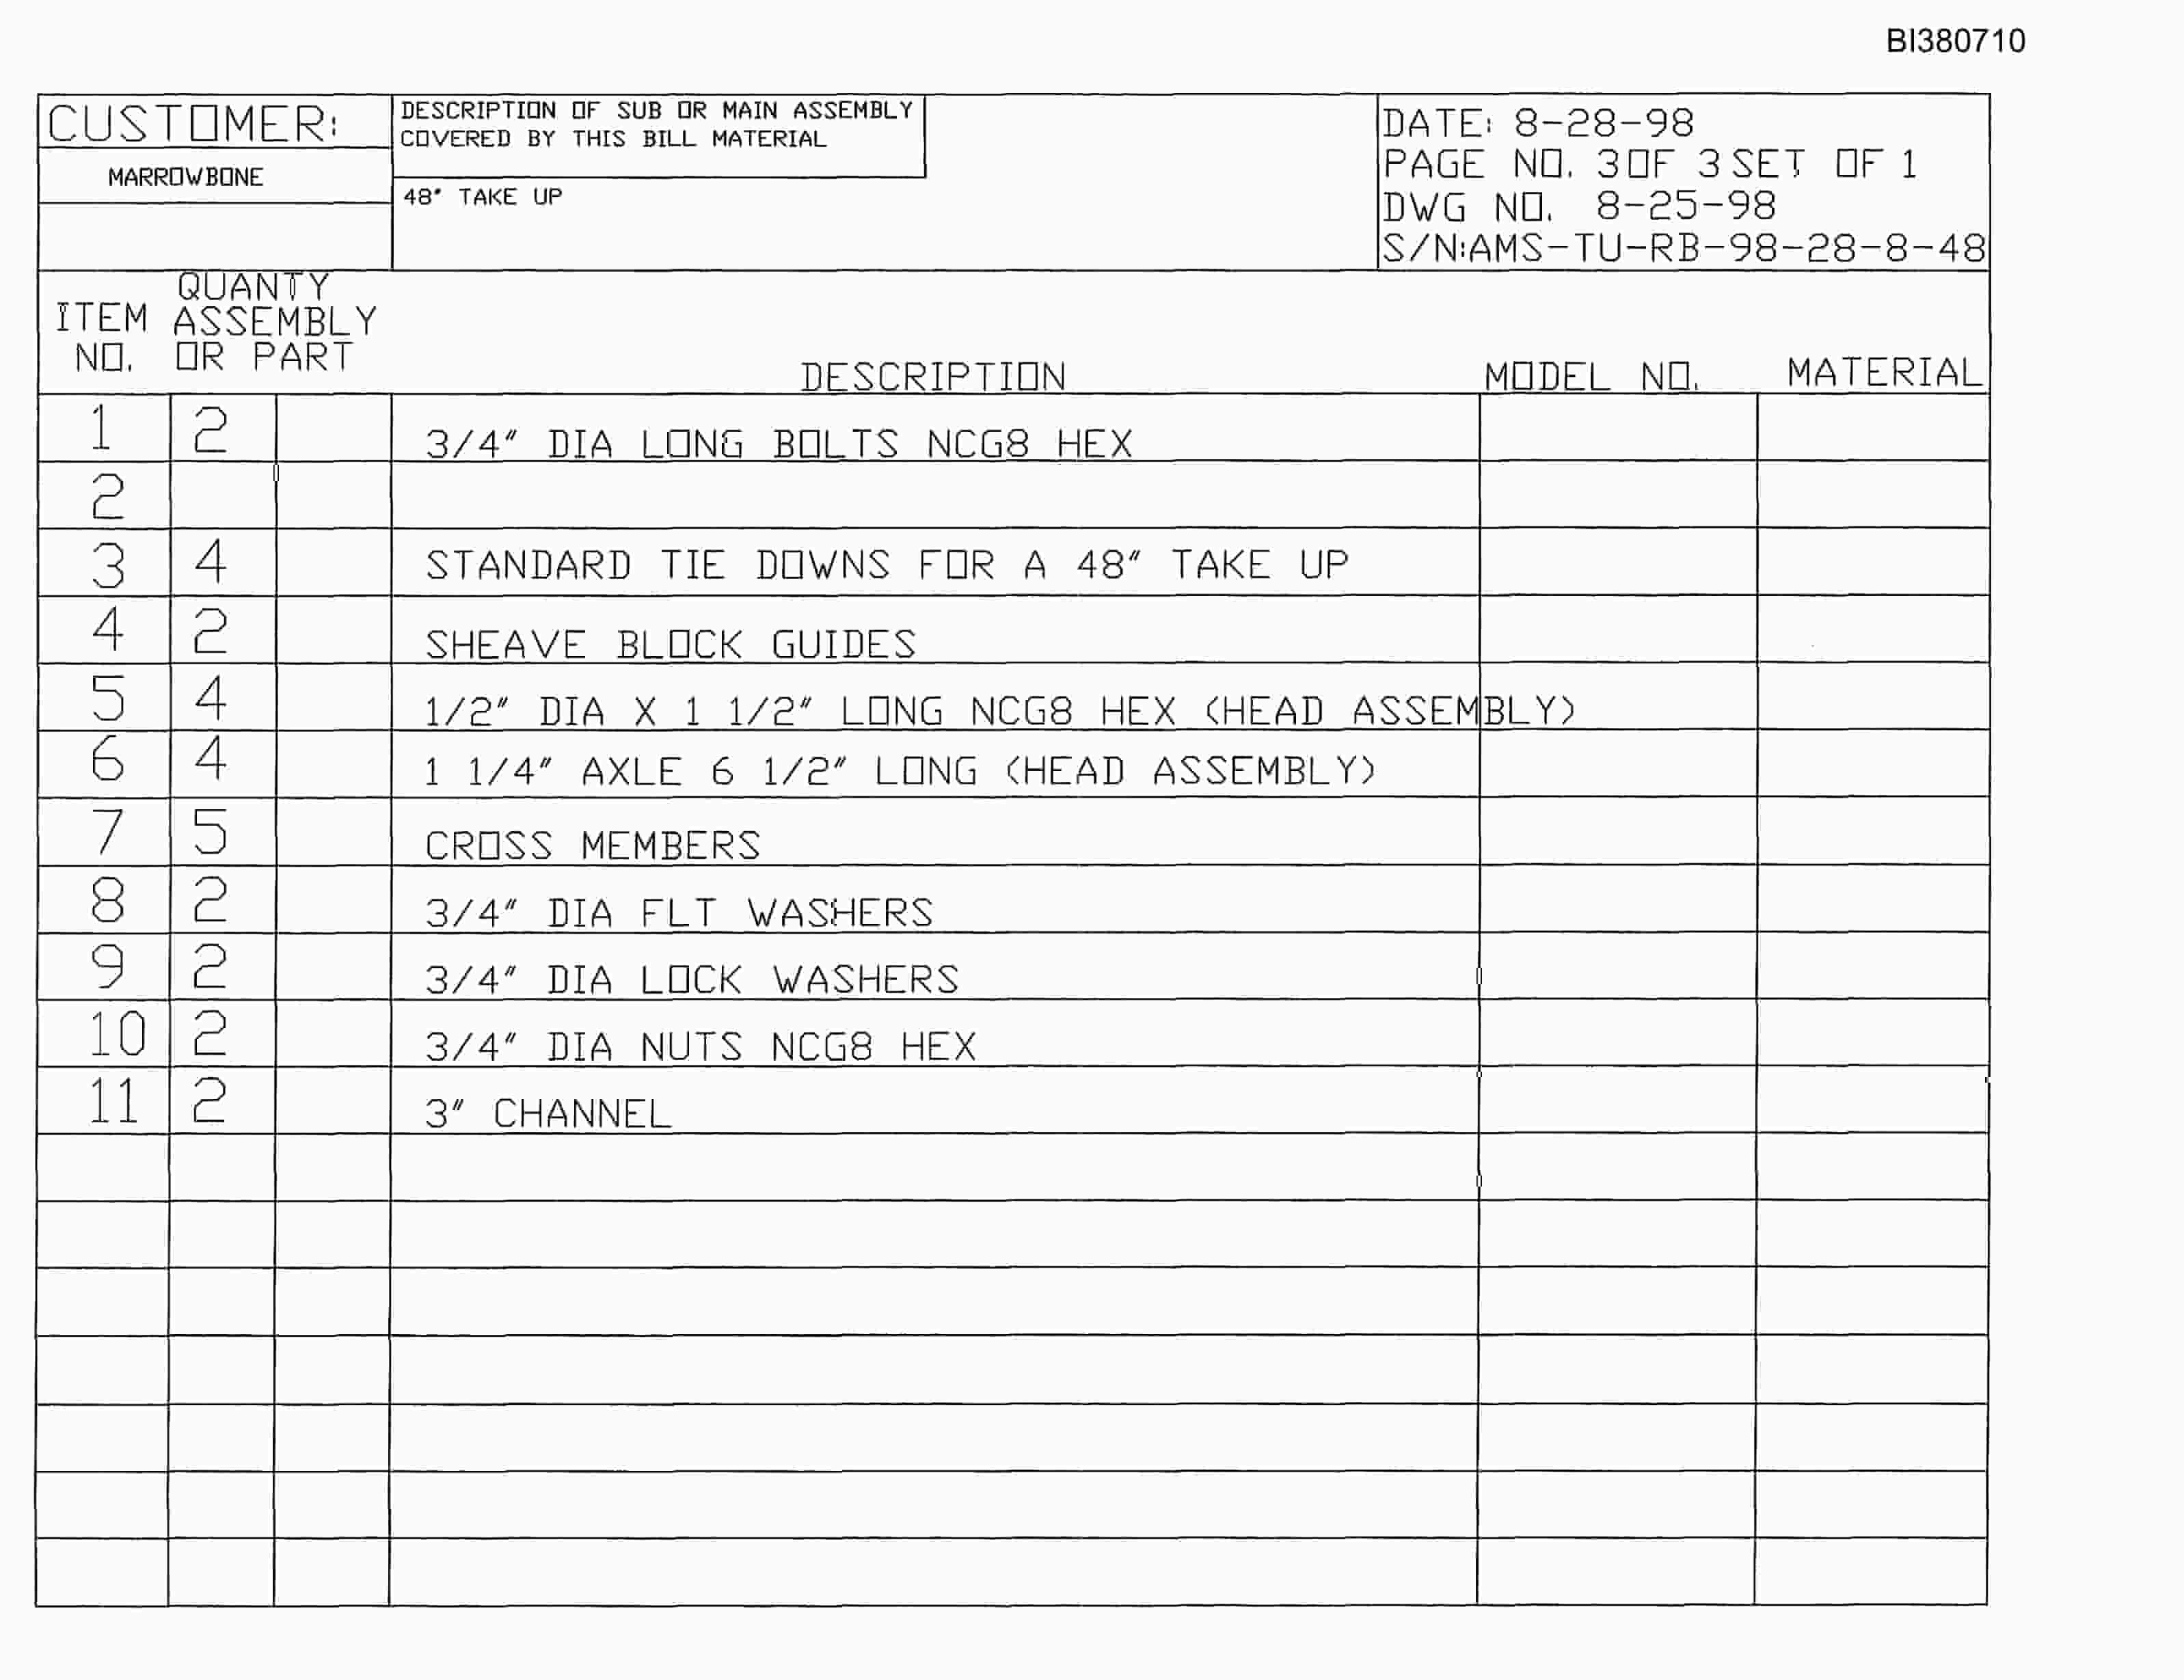 BI380710
CUSTOMER:
MARROWBONE
DESCRIPTION OF SUB OR MAIN ASSEMBLY
COVERED BY THIS BILL MATERIAL
48" TAKE UP
DATE: 8-28-98
PAGE NO. 3 OF 3 SET OF 1
DWG NO. 8-25-98
S/N:AMS-TU-RB-98-28-8-48
ITEM NO. QUANTY ASSEMBLY OR PART DESCRIPTION MODEL NO. MATERIAL
1 2 3/4" DIA LONG BOLTS NCG8 HEX
2
3 4 STANDARD TIE DOWNS FOR A 48" TAKE UP
4 2 SHEAVE BLOCK GUIDES
5 4 1/2" DIA X 1 1/2" LONG NCG8 HEX (HEAD ASSEMBLY)
6 4 1 1/4" AXLE 6 1/2" LONG (HEAD ASSEMBLY)
7 5 CROSS MEMBERS
8 2 3/4" DIA FLT WASHERS
9 2 3/4" DIA LOCK WASHERS
10 2 3/4" DIA NUTS NCG8 HEX
11 2 3" CHANNEL